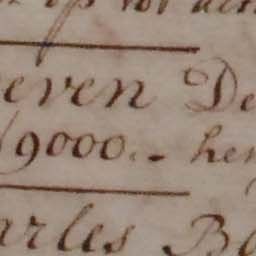 op tot
even De
9000.- her
arles Bo